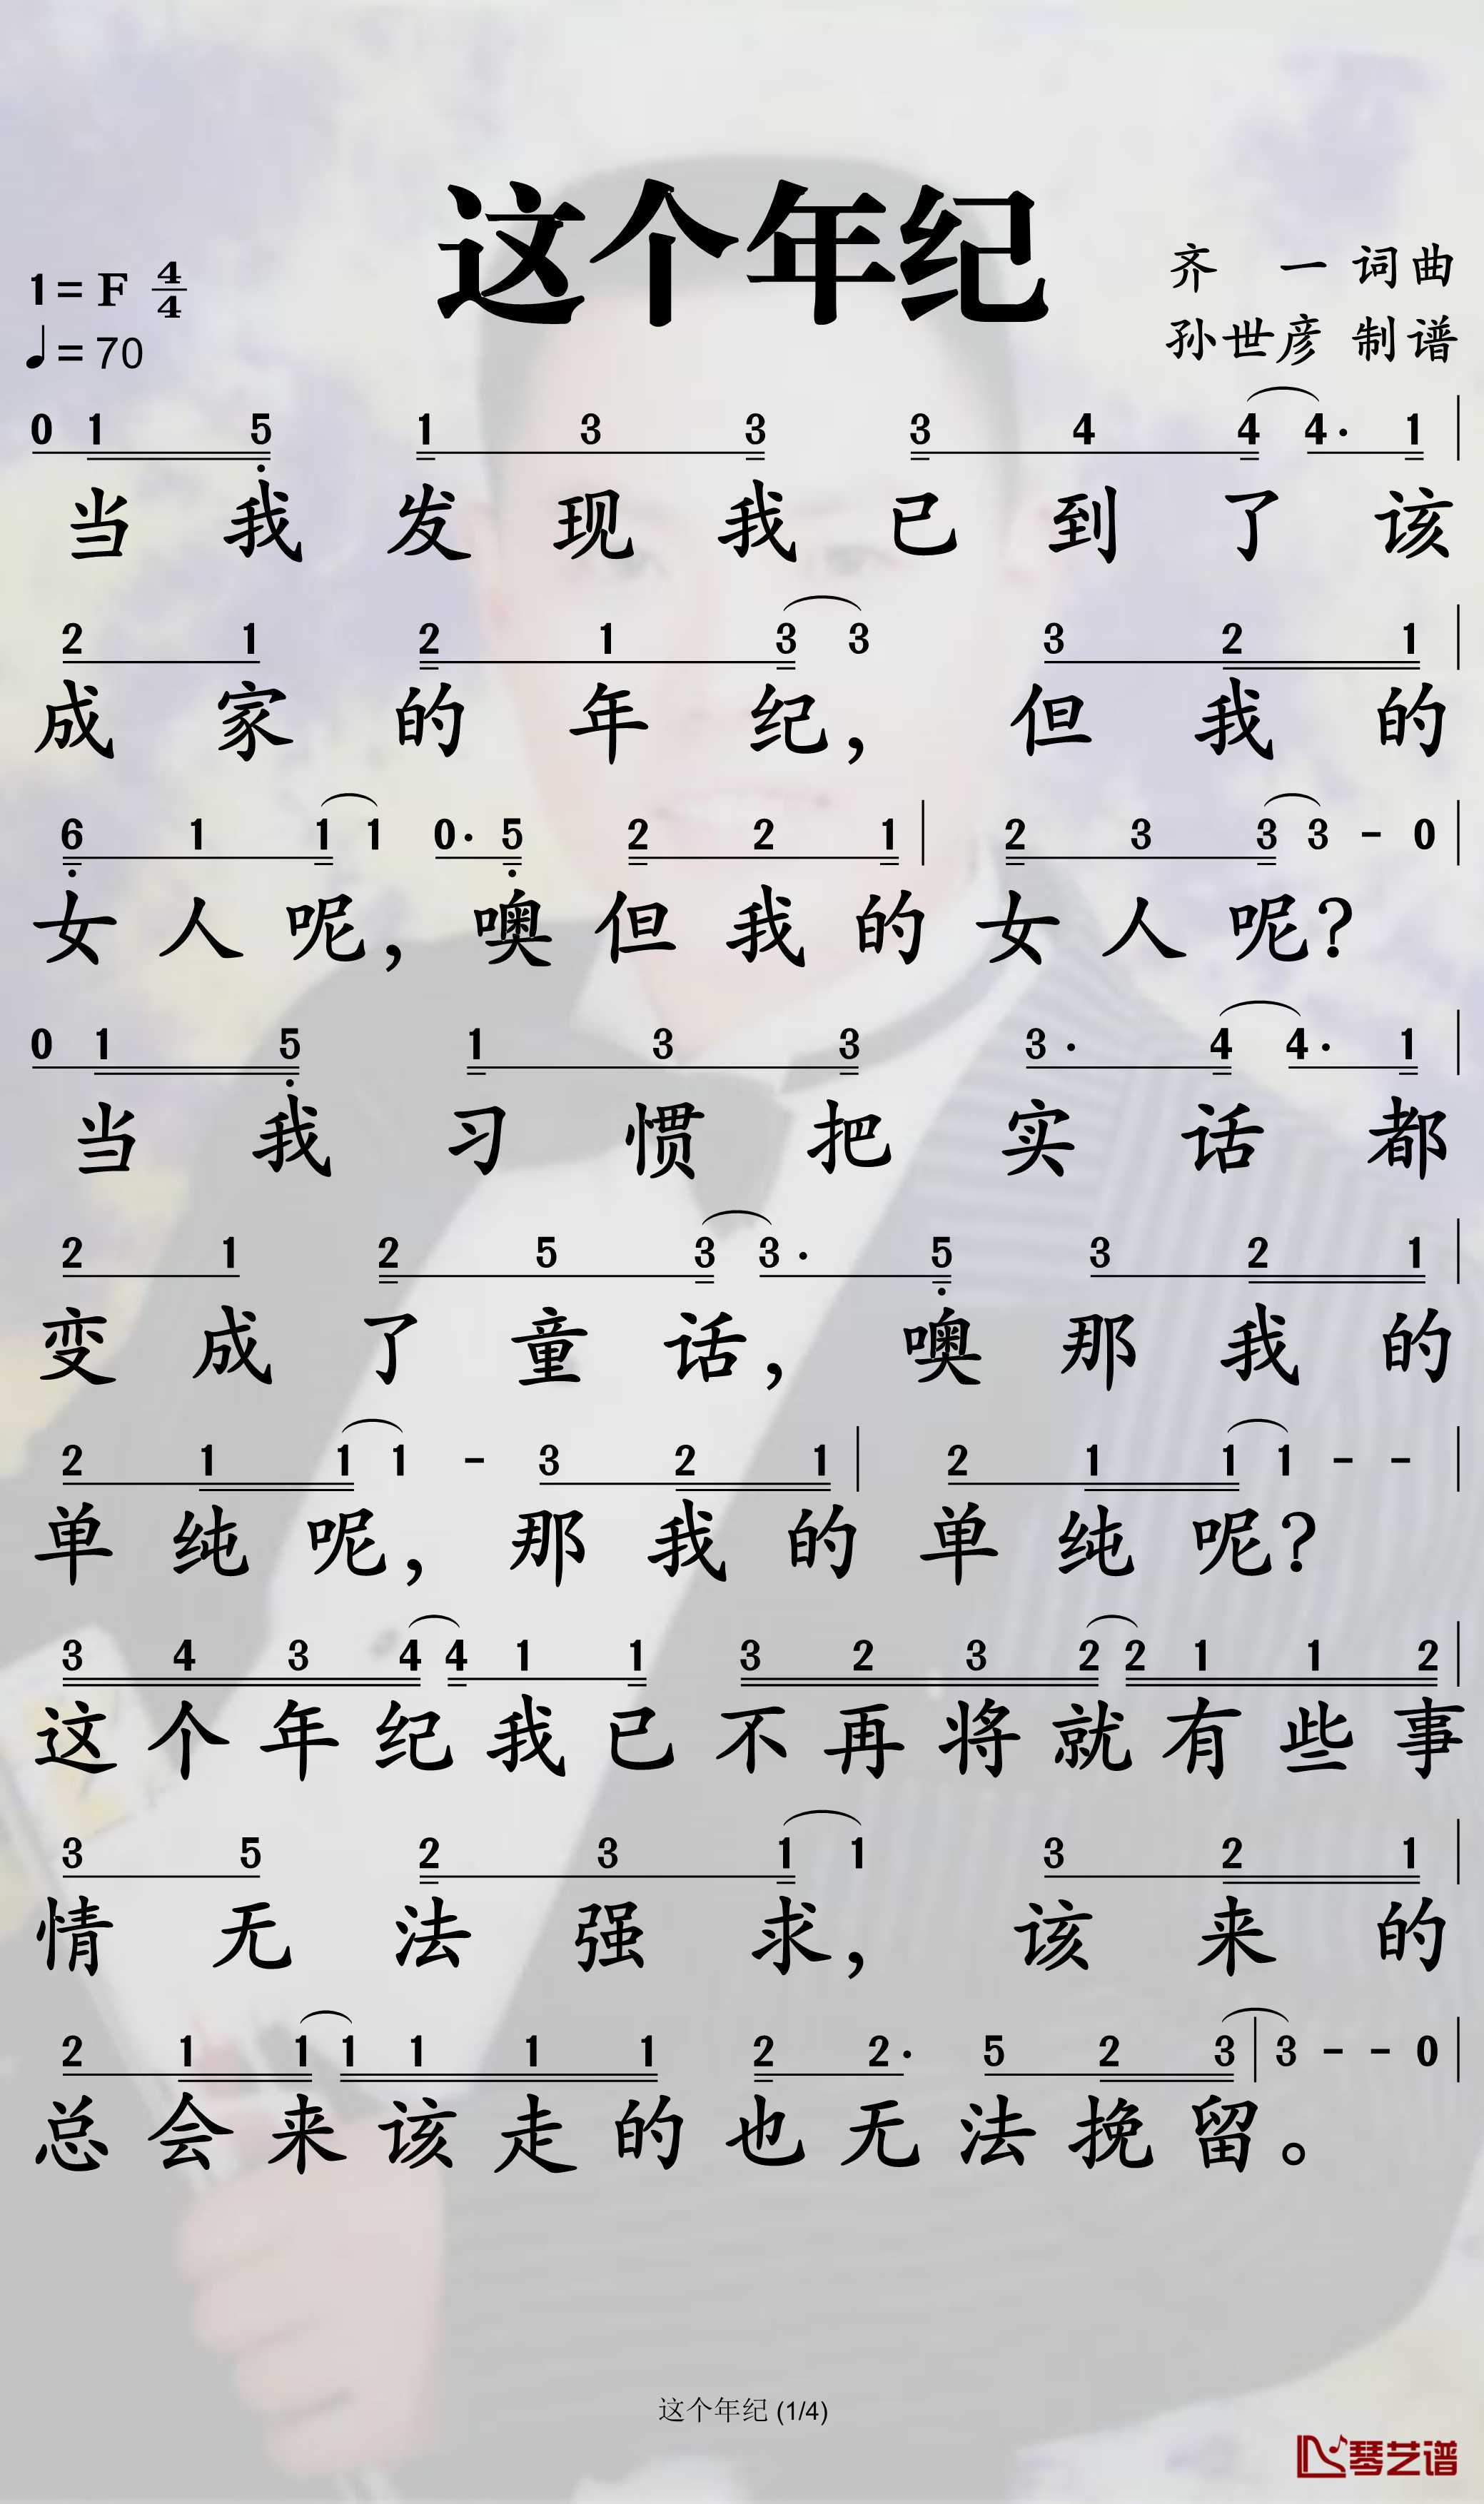 这个年纪
1=F 4/4
♩=70
齐 一 词曲
孙世彦 制谱
0 1 5 1 3 3 3 4 4 4· 1 |
当 我 发 现 我 已 到 了 该
2 1 2 1 3 3 3 2 1 |
成 家 的 年 纪， 但 我 的
6 1 1 1 0· 5 2 2 1 | 2 3 3 3 - 0 |
女 人 呢， 噢 但 我 的 女 人 呢？
0 1 5 1 3 3 3· 4 4· 1 |
当 我 习 惯 把 实 话 都
2 1 2 5 3 3· 5 3 2 1 |
变 成 了 童 话， 噢 那 我 的
2 1 1 1 - 3 2 1 | 2 1 1 1 - - |
单 纯 呢， 那 我 的 单 纯 呢？
3 4 3 4 4 1 1 3 2 3 2 2 1 1 2 |
这 个 年 纪 我 已 不 再 将 就 有 些 事
3 5 2 3 1 1 3 2 1 |
情 无 法 强 求， 该 来 的
2 1 1 1 1 1 1 2 2· 5 2 3 | 3 - - 0 |
总 会 来 该 走 的 也 无 法 挽 留。
这个年纪 (1/4)
琴艺谱